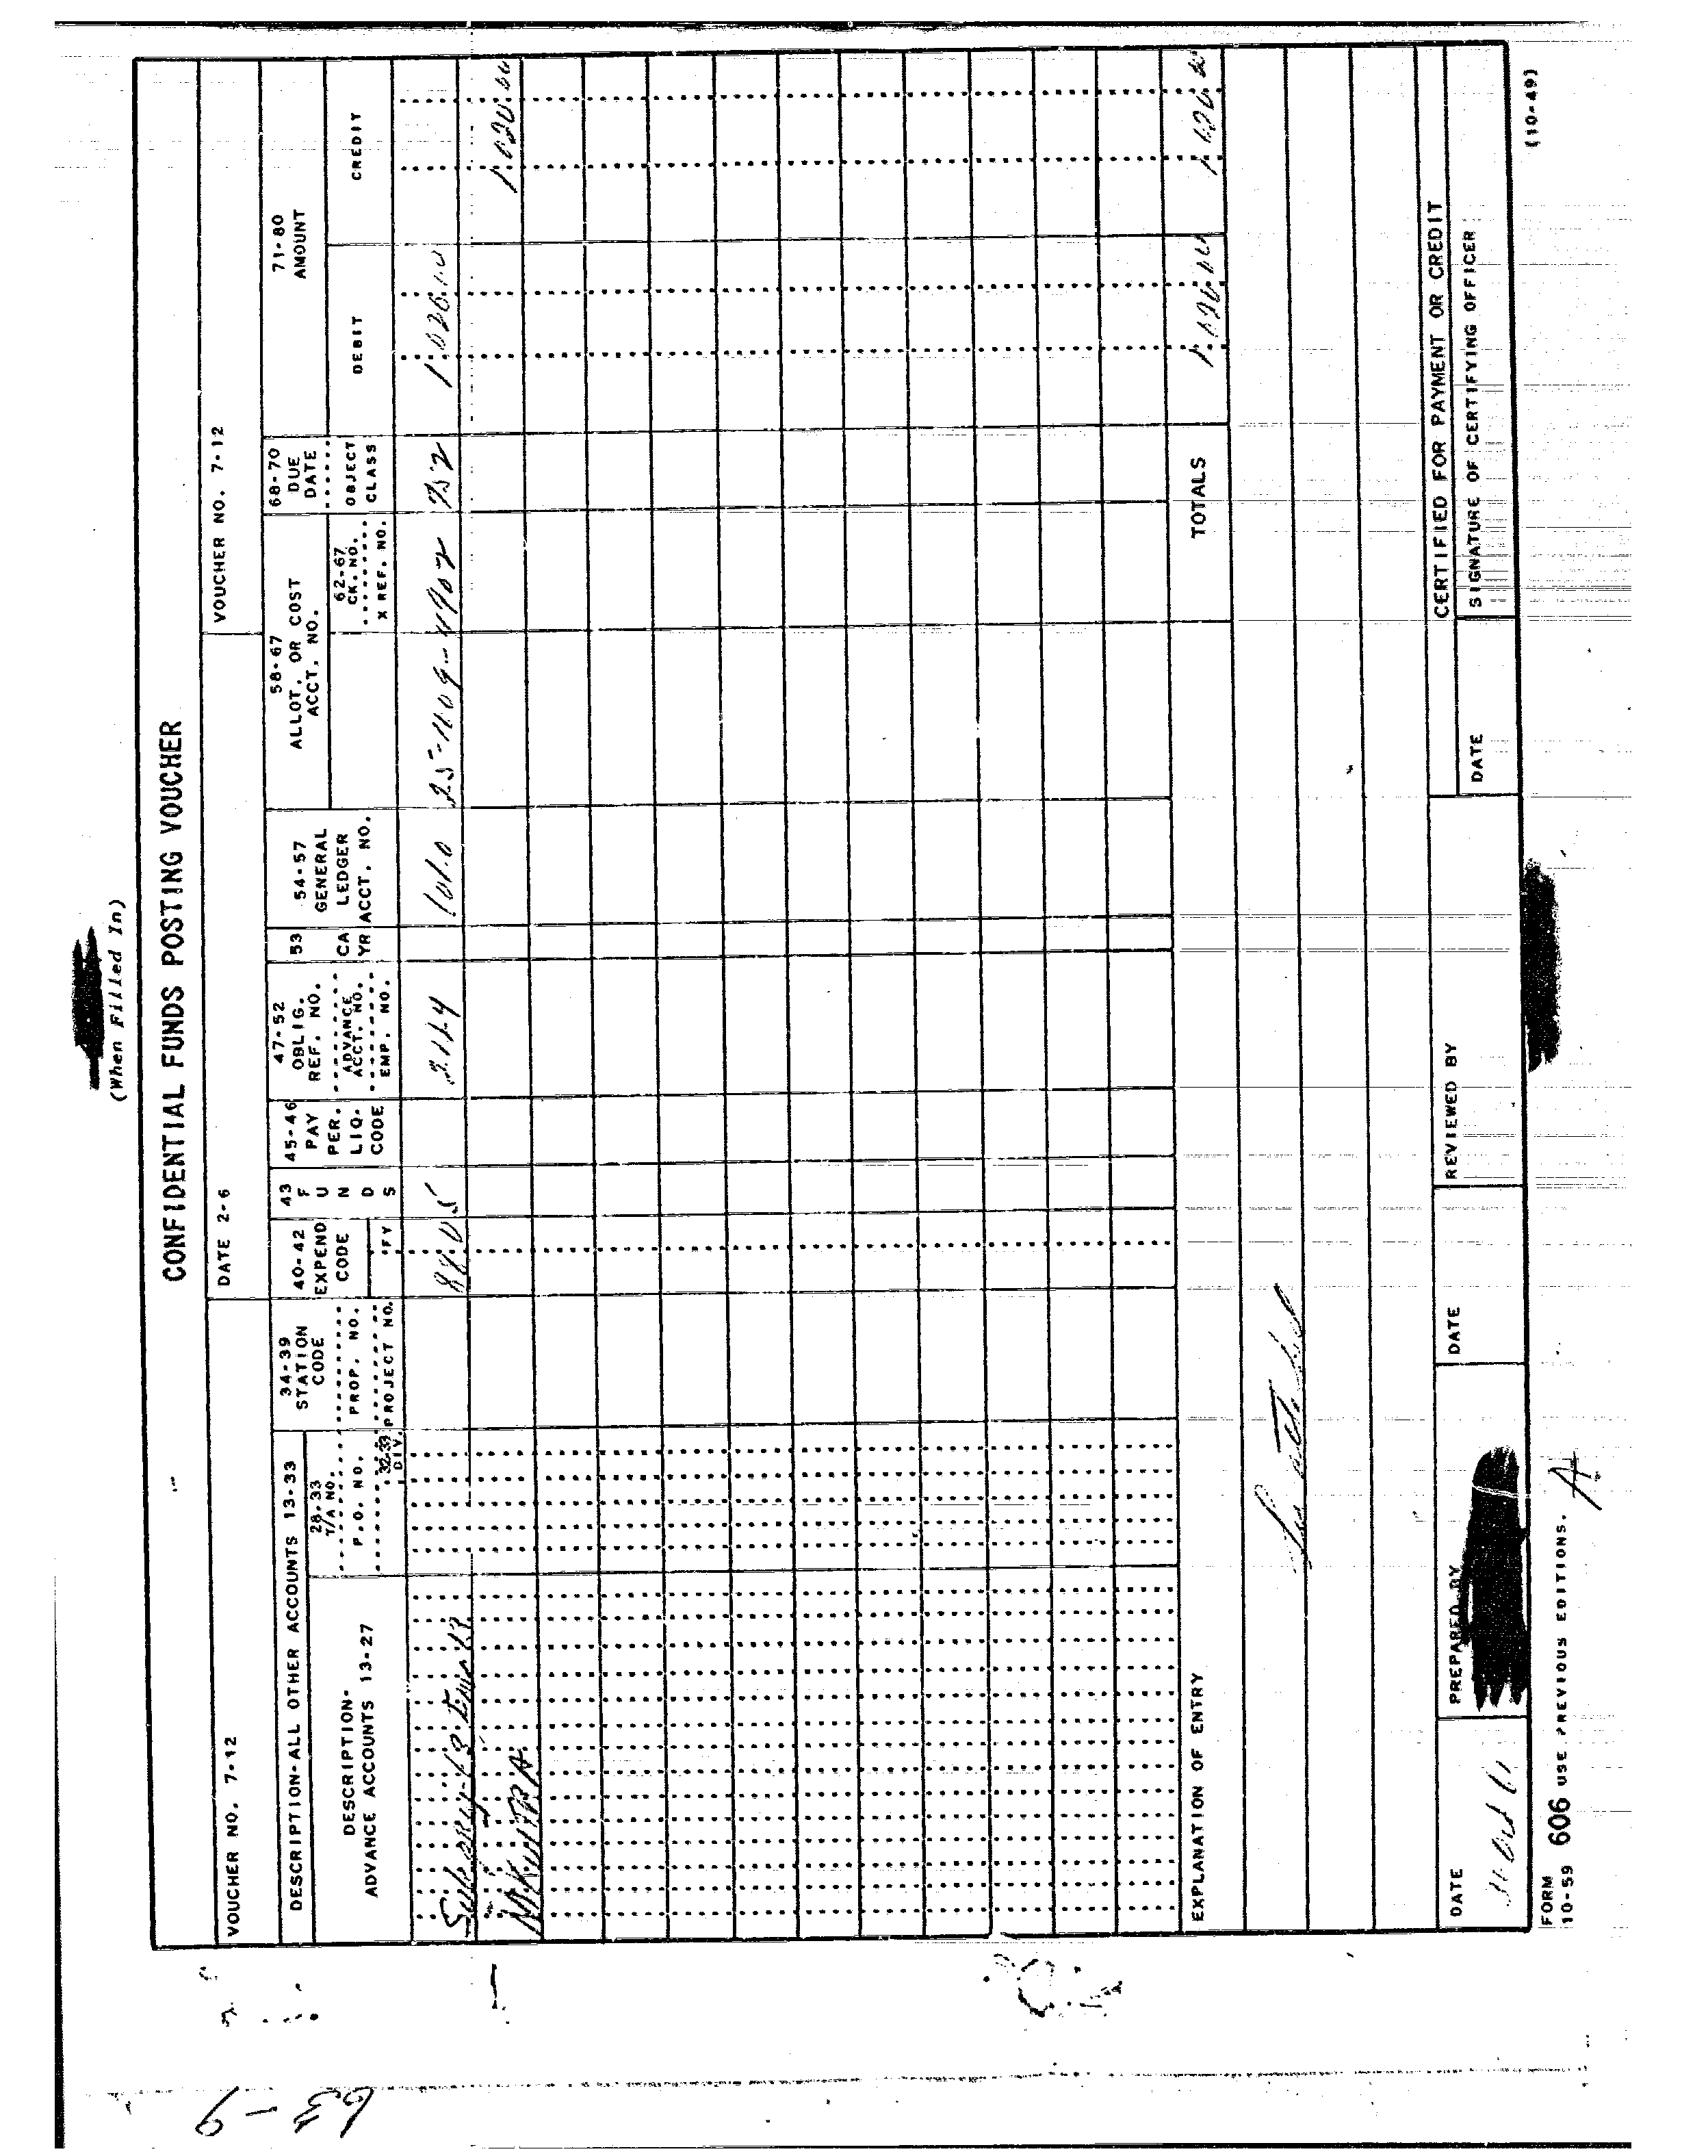 (When Filled In)
CONFIDENTIAL FUNDS POSTING VOUCHER
VOUCHER NO. 7-12
DATE 2-6
VOUCHER NO. 7-12
DESCRIPTION-ALL OTHER ACCOUNTS 13-33
DESCRIPTION-
ADVANCE ACCOUNTS 13-27
28-33
T/A NO.
P.O. NO.
32-33
DIV.
34-39
STATION
CODE
PROP. NO.
PROJECT NO.
40-42
EXPEND
CODE
FY
43
F
U
N
D
S
45-46
PAY
PER.
LIQ.
CODE
47-52
OBLIG.
REF. NO.
ADVANCE
ACCT. NO.
EMP. NO.
53
CA
YR
54-57
GENERAL
LEDGER
ACCT. NO.
58-67
ALLOT. OR COST
ACCT. NO.
62-67
CK. NO.
X REF. NO.
68-70
DUE
DATE
OBJECT
CLASS
71-80
AMOUNT
DEBIT
CREDIT
2114
EXPLANATION OF ENTRY
TOTALS
CERTIFIED FOR PAYMENT OR CREDIT
DATE
PREPARED BY
DATE
REVIEWED BY
DATE
SIGNATURE OF CERTIFYING OFFICER
FORM
10-59 606 USE PREVIOUS EDITIONS.
A
(10-49)
63-9